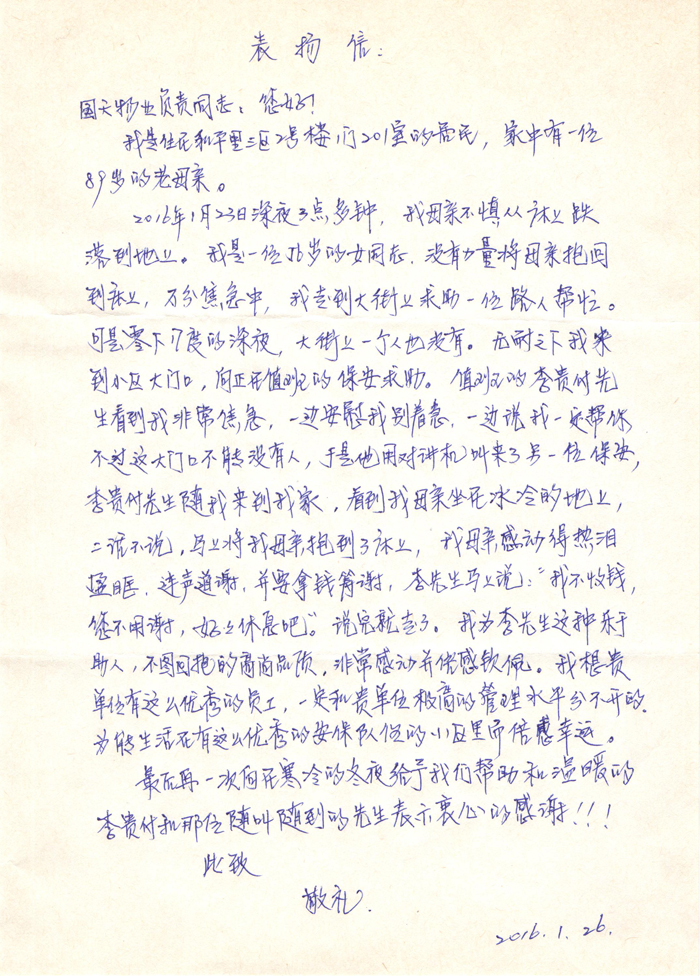 表扬信：
国天物业负责同志：您好！
我是住在和平里三区2号楼1门201室的居民，家中有一位
89岁的老母亲。
2016年1月23日深夜3点多钟，我母亲不慎从床上跌
落到地上。我是一位56岁的女同志，没有力量将母亲抱回
到床上，万分焦急中，我走到大街上求助一位路人帮忙。
可是零下17度的深夜，大街上一个人也没有。无耐之下我来
到小区大门口，向正在值班的保安求助。值班的李贵付先
生看到我非常焦急，一边安慰我别着急，一边说我一定帮你
不过这大门口不能没有人，于是他用对讲机叫来了另一位保安，
李贵付先生随我来到我家，看到我母亲坐在冰冷的地上，
二话不说，马上将我母亲抱到了床上，我母亲感动得热泪
盈眶，连声道谢，并要拿钱答谢，李先生马上说：“我不收钱，
您不用谢，好好休息吧。”说完就走了。我为李先生这种乐于
助人，不图回抱的高尚品质，非常感动并倍感钦佩。我想贵
单位有这么优秀的员工，一定和贵单位极高的管理水平分不开的。
为能生活在有这么优秀的安保队伍的小区里而倍感幸运。
最后再一次向在寒冷的冬夜给予我们帮助和温暖的
李贵付和那位随叫随到的先生表示衷心的感谢！！！
此致
敬礼.
2016.1.26.